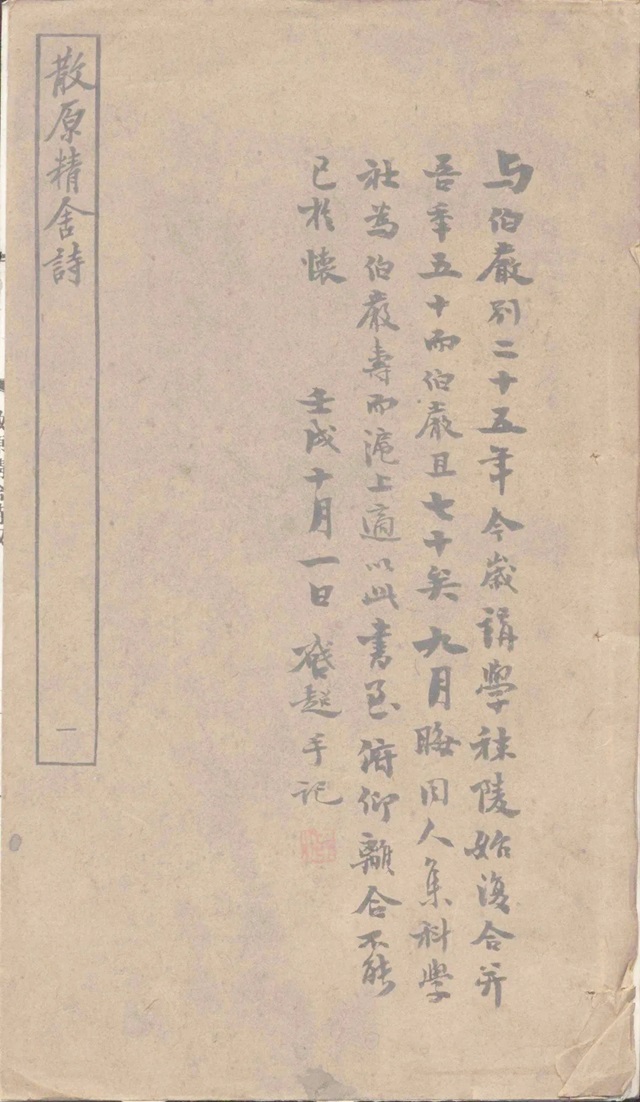 与伯嚴別二十五年今歲講學秣陵始復合并
吾年五十而伯嚴且七十矣九月晦同人集科學
社為伯嚴壽而滬上適以此書至俯仰離合不能
已於懷　　壬戌十月一日　啟超手記
散原精舍詩
一